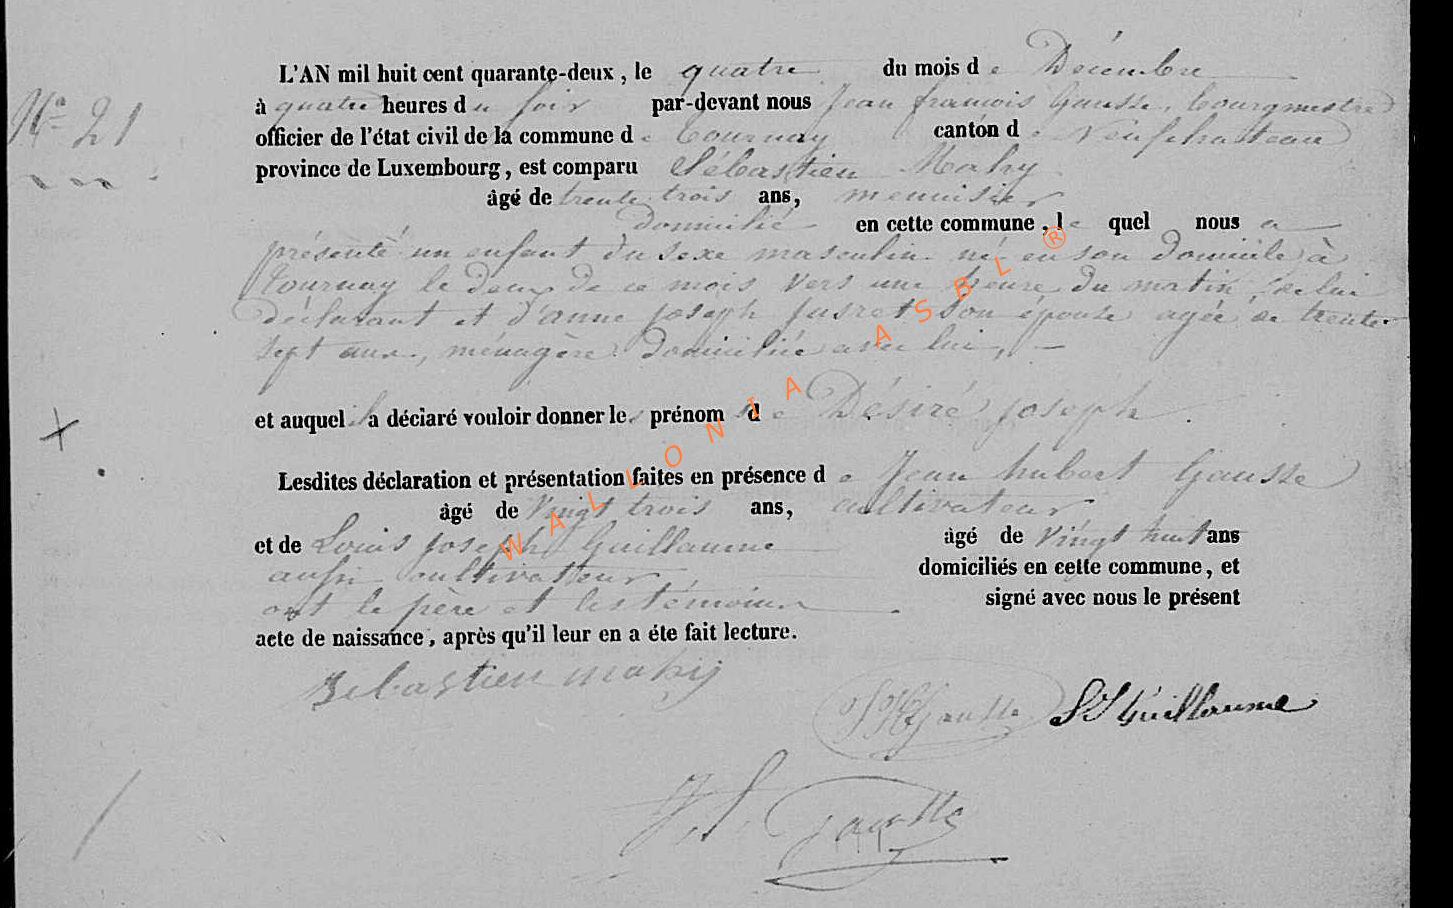 N° 21
L'AN mil huit cent quarante-deux, le quatre du mois de Décembre
à quatre heures du soir par-devant nous Jean françois Gausse, bourgmestre
officier de l'état civil de la commune de tournay canton de neufchateau
province de Luxembourg, est comparu Sébastien Mahy
âgé de trente trois ans, menuisier
domicilié en cette commune, lequel nous a
présenté un enfant du sexe masculin né en son domicile à
tournay le deux de ce mois vers une heure du matin, de lui
déclarant et d'anne joseph jusret son épouse agée de trente-
sept ans, ménagère domiciliée avec lui, —
et auquel il a déclaré vouloir donner les prénoms de Désiré joseph
Lesdites déclaration et présentation faites en présence de Jean hubert Gausse
âgé de vingt trois ans, cultivateur
et de Louis joseph Guillaume âgé de vingt huit ans
aussi cultivateur domiciliés en cette commune, et
ont le père et les témoins signé avec nous le présent
acte de naissance, après qu'il leur en a éte fait lecture.
Sebastien mahy
JH Gausse LJ Guillaume
J. f. Gausse
WALLONIA ASBL ®